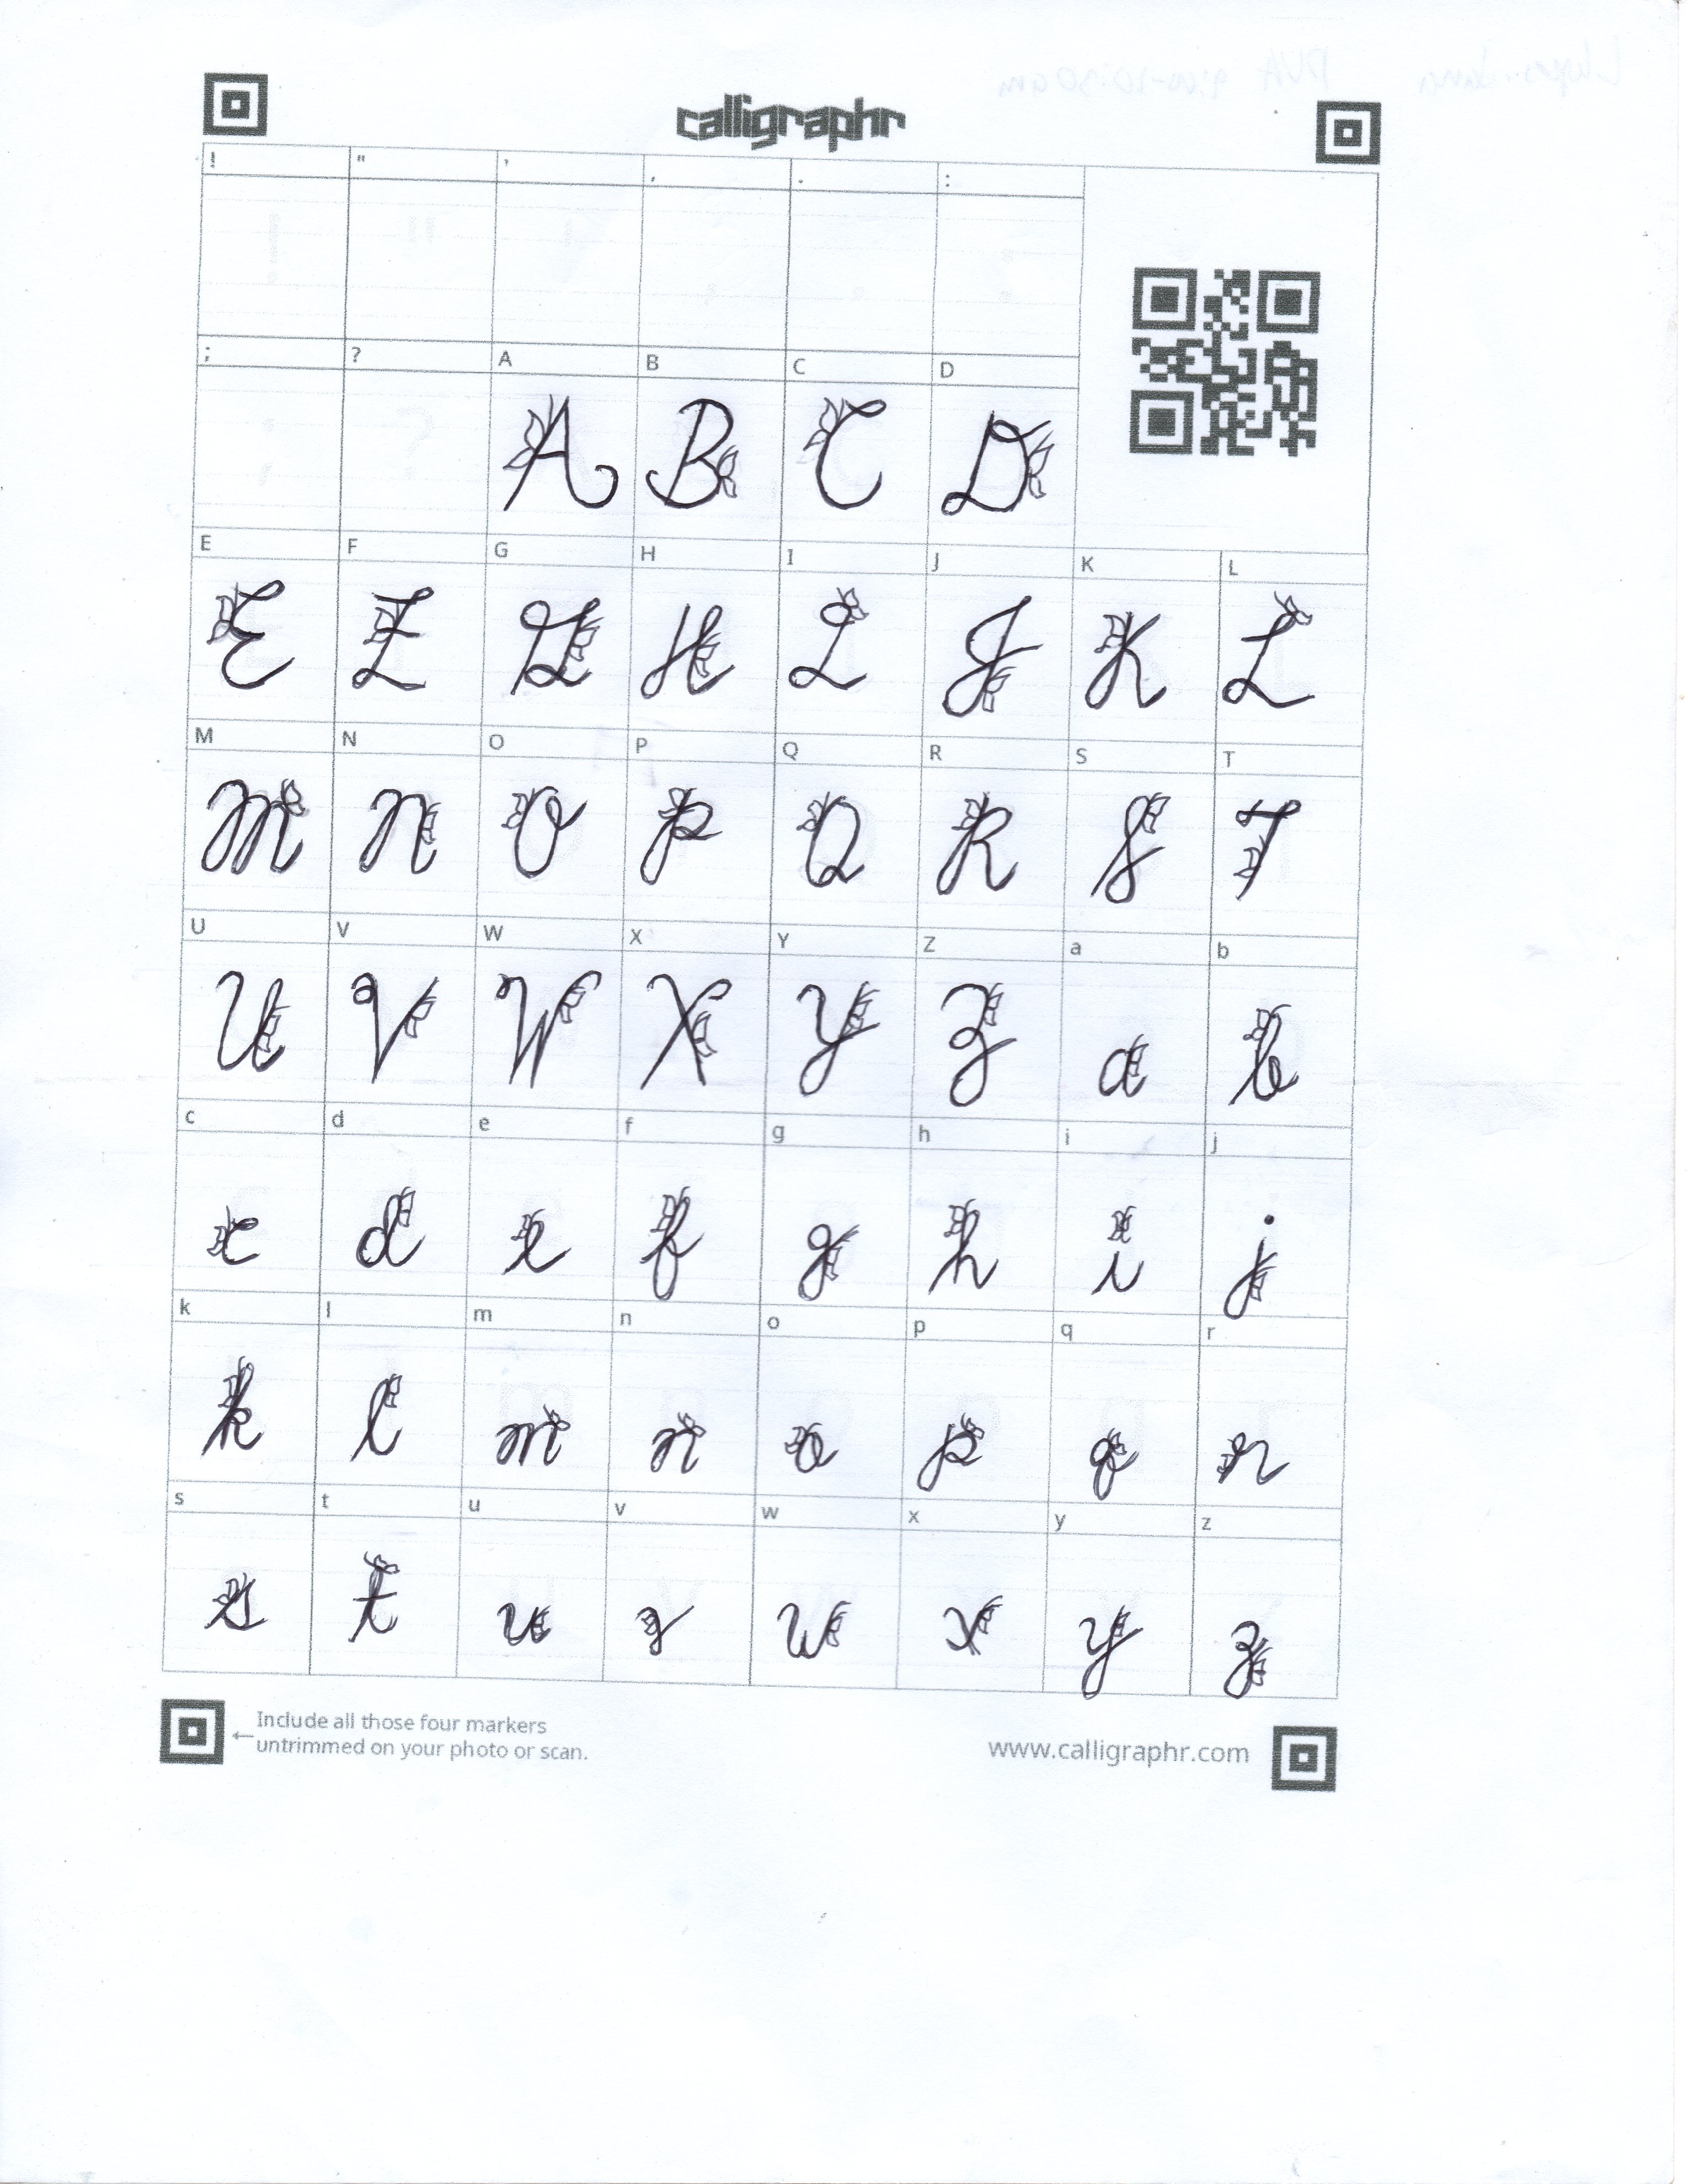 calligraphr
! " ' , . :
; ? A B C D
A B C D
E F G H I J K L
E F G H I J K L
M N O P Q R S T
M N O P Q R S T
U V W X Y Z a b
U V W X Y Z a b
c d e f g h i j
c d e f g h i j
k l m n o p q r
k l m n o p q r
s t u v w x y z
s t u v w x y z
←Include all those four markers
untrimmed on your photo or scan.
www.calligraphr.com